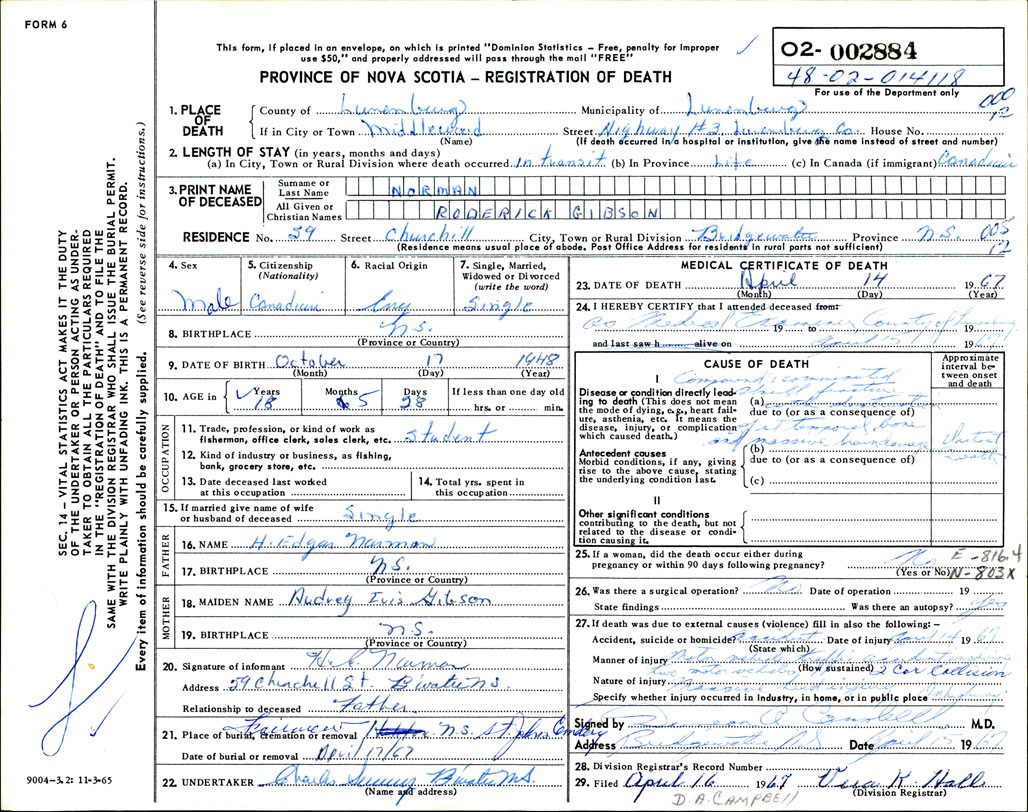 FORM 6
This form, if placed in an envelope, on which is printed "Dominion Statistics – Free, penalty for improper
use $50," and properly addressed will pass through the mail "FREE"
02- 002884
48-02-014118
For use of the Department only
PROVINCE OF NOVA SCOTIA – REGISTRATION OF DEATH
1. PLACE OF DEATH
County of Lunenburg Municipality of Lunenburg
If in City or Town Middlewood Street Highway #3, Lunenburg Co. House No.
(Name) (If death occurred in a hospital or institution, give the name instead of street and number)
2. LENGTH OF STAY (in years, months and days)
(a) In City, Town or Rural Division where death occurred in transit (b) In Province Life (c) In Canada (if immigrant) Canadian
3. PRINT NAME OF DECEASED
Surname or Last Name NORMAN
All Given or Christian Names RODERICK GIBSON
RESIDENCE No. 59 Street Churchill City, Town or Rural Division Bridgewater Province N.S. 005
(Residence means usual place of abode. Post Office Address for residents in rural parts not sufficient)
4. Sex
Male
5. Citizenship (Nationality)
Canadian
6. Racial Origin
Eng
7. Single, Married, Widowed or Divorced (write the word)
Single
8. BIRTHPLACE N.S.
(Province or Country)
9. DATE OF BIRTH October 17 1948
(Month) (Day) (Year)
10. AGE in Years 18 Months 5 Days 28 If less than one day old
hrs. or min.
OCCUPATION
11. Trade, profession, or kind of work as
fisherman, office clerk, sales clerk, etc. Student
12. Kind of industry or business, as fishing,
bank, grocery store, etc.
13. Date deceased last worked
at this occupation
14. Total yrs. spent in
this occupation
15. If married give name of wife
or husband of deceased Single
FATHER
16. NAME H. Edgar Norman
17. BIRTHPLACE N.S.
(Province or Country)
MOTHER
18. MAIDEN NAME Audrey Iris Gibson
19. BIRTHPLACE N.S.
(Province or Country)
20. Signature of informant H.E. Norman
Address 59 Churchill St. B'water N.S.
Relationship to deceased Father
21. Place of burial, cremation or removal N.S. St John's Cemetery
Date of burial or removal April 17/67
22. UNDERTAKER Charles B'water N.S.
(Name and address)
MEDICAL CERTIFICATE OF DEATH
23. DATE OF DEATH April 14 1967
(Month) (Day) (Year)
24. I HEREBY CERTIFY that I attended deceased from:
as Medical Examiner County of Lunenburg
19 to 19
and last saw h alive on April 15 1967
CAUSE OF DEATH
Approximate interval between onset and death
I
Disease or condition directly leading to death (This does not mean the mode of dying, e.g., heart failure, asthenia, etc. It means the disease, injury, or complication which caused death.)
Compound comminuted
skull fracture
(a)
due to (or as a consequence of)
of rt temporal bone
and massive brain damage
Instant
Death
Antecedent causes
Morbid conditions, if any, giving rise to the above cause, stating the underlying condition last.
(b)
due to (or as a consequence of)
(c)
II
Other significant conditions
contributing to the death, but not related to the disease or condition causing it.
25. If a woman, did the death occur either during
pregnancy or within 90 days following pregnancy? No
(Yes or No)
E-816.4
N-803X
26. Was there a surgical operation? No Date of operation 19
State findings Was there an autopsy? Yes
27. If death was due to external causes (violence) fill in also the following: –
Accident, suicide or homicide? Accident Date of injury April 14 1967
(State which)
Manner of injury Motor vehicle traffic accident involving
two motor vehicles (How sustained) 2 Car Collision
Nature of injury Massive head injury
Specify whether injury occurred in industry, in home, or in public place Highway
Signed by Campbell M.D.
Address Bridgewater N.S. Date April 15 1967
28. Division Registrar's Record Number
29. Filed April 16 1967 Vera K. Halls
(Division Registrar)
D.A. CAMPBELL
SEC. 14 – VITAL STATISTICS ACT MAKES IT THE DUTY
OF THE UNDERTAKER OR PERSON ACTING AS UNDERTAKER TO OBTAIN ALL THE PARTICULARS REQUIRED
IN THE "REGISTRATION OF DEATH" AND TO FILE THE
SAME WITH THE DIVISION REGISTRAR WHO SHALL ISSUE THE BURIAL PERMIT.
WRITE PLAINLY WITH UNFADING INK. THIS IS A PERMANENT RECORD.
Every item of information should be carefully supplied. (See reverse side for instructions.)
9004-3.2: 11-3-65